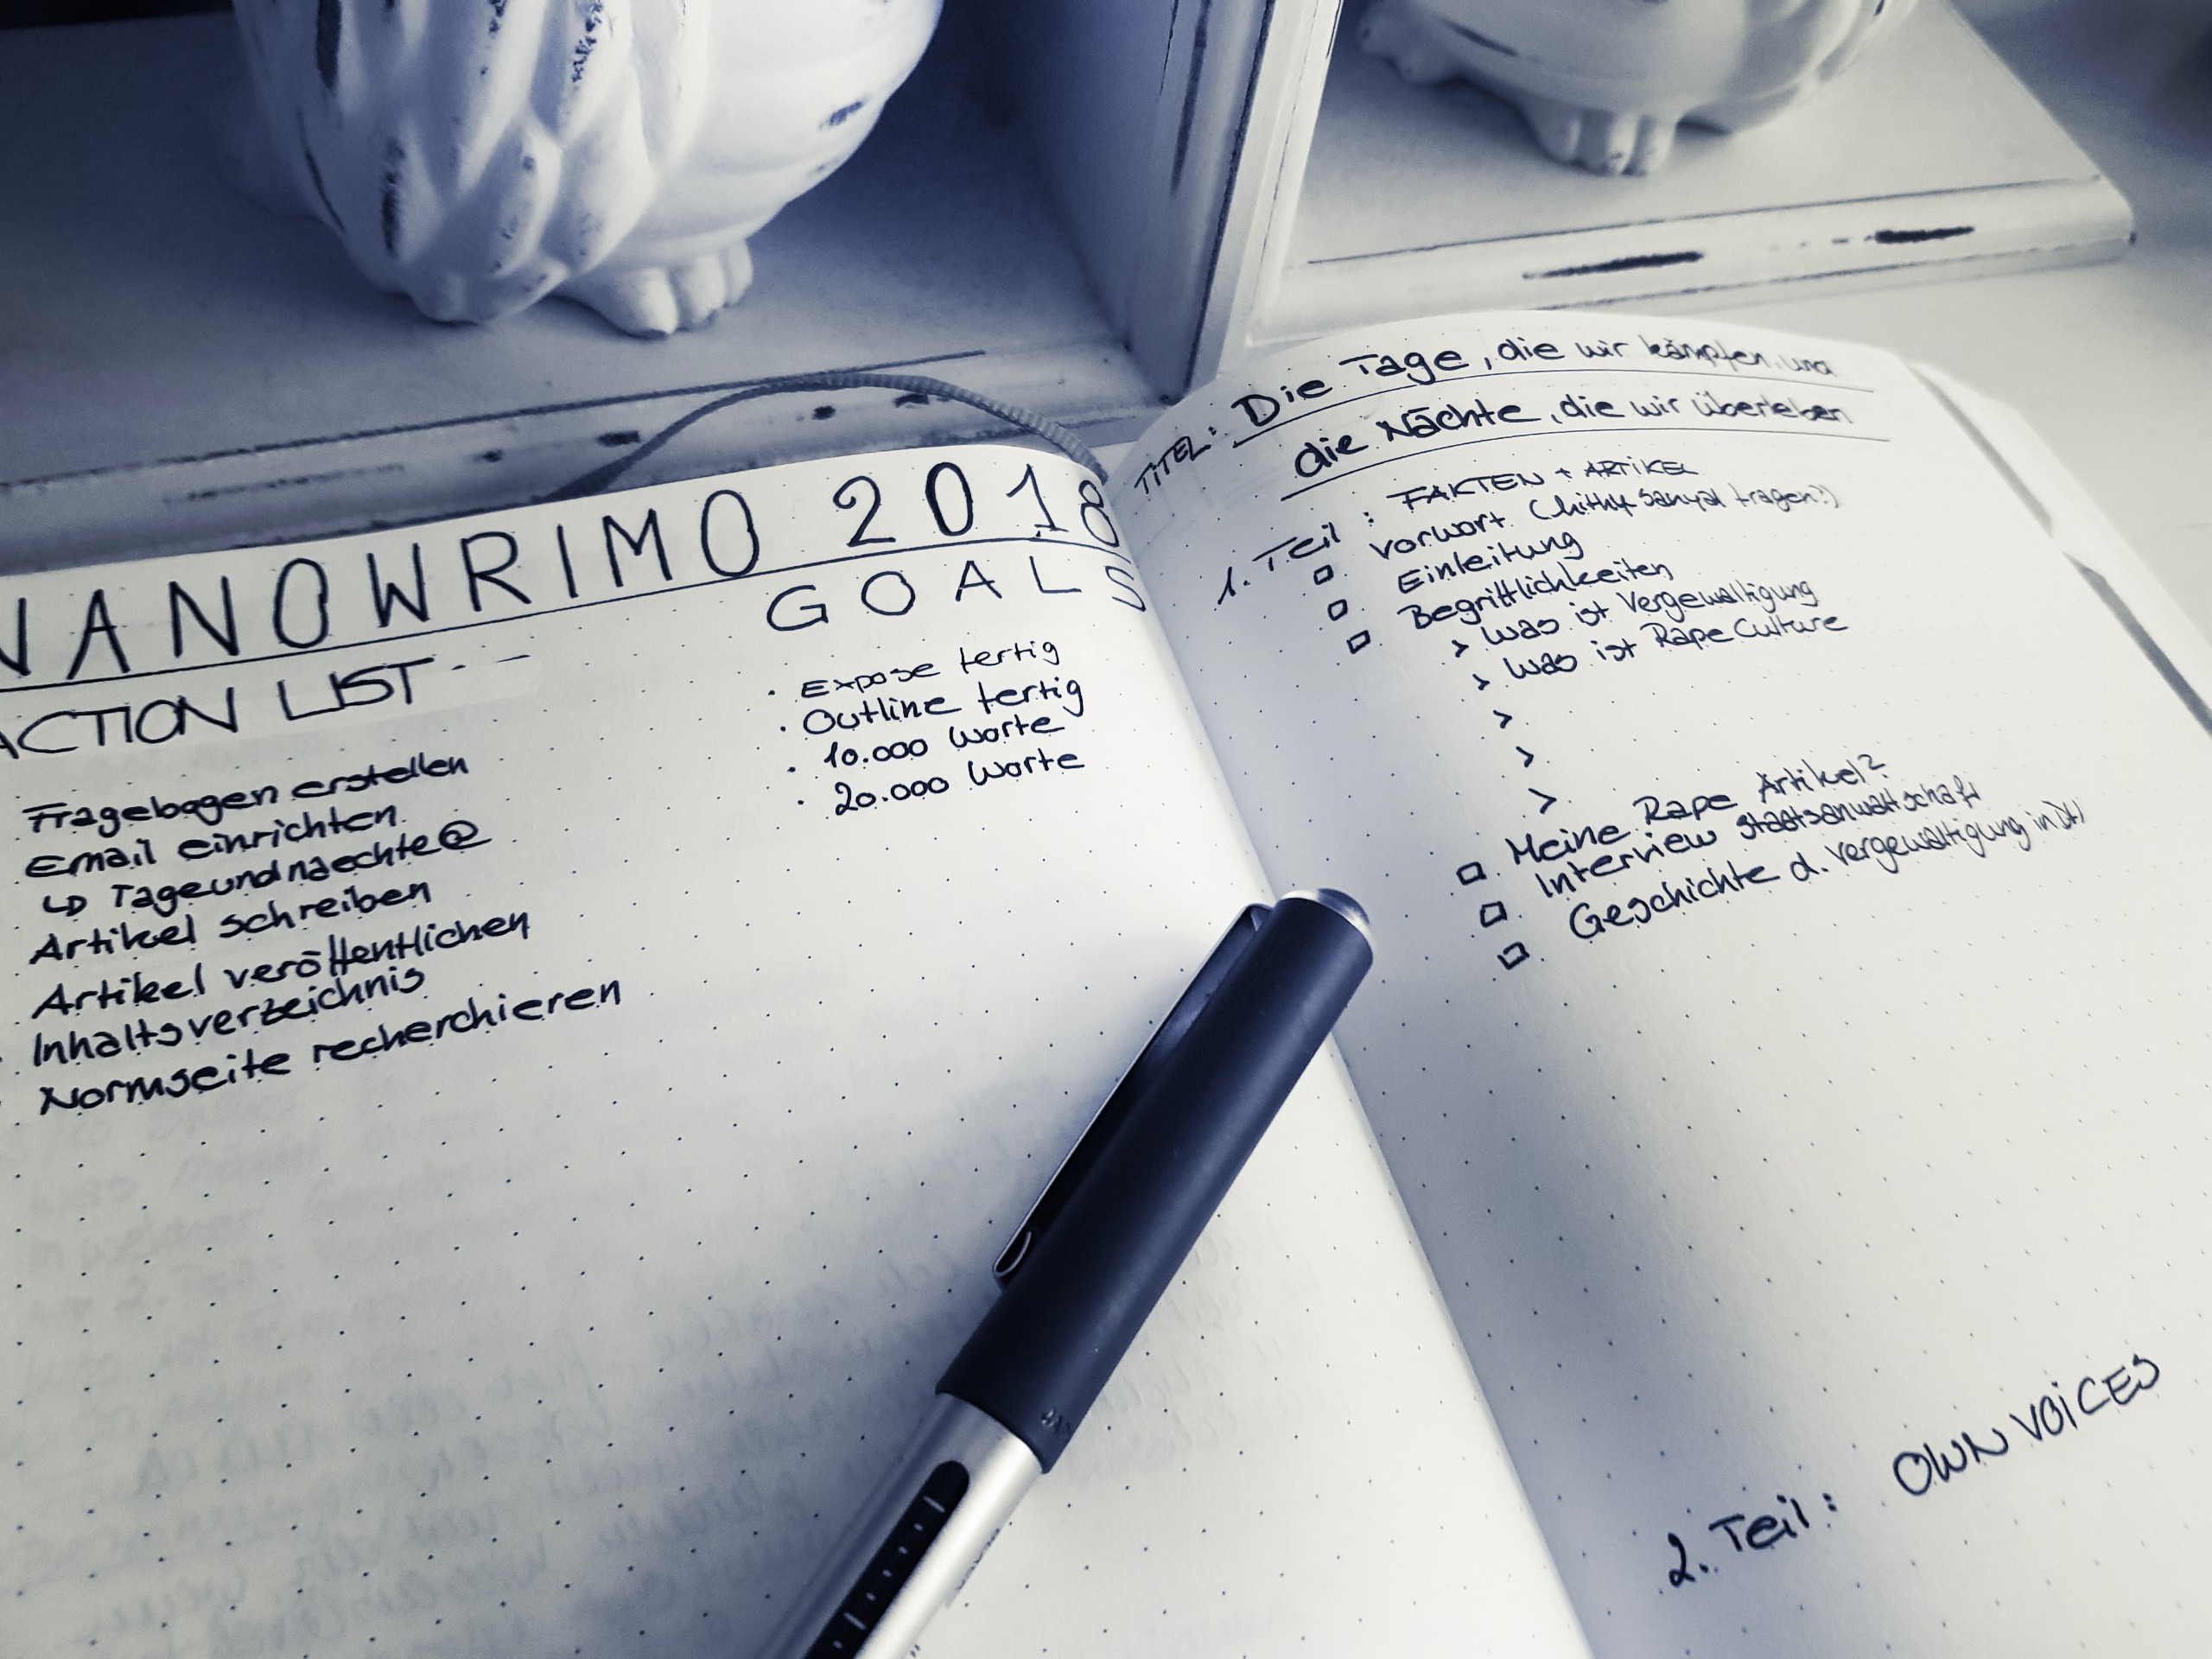 NANOWRIMO 2018
ACTION LIST
Fragebogen erstellen
Email einrichten
↳ Tageundnaechte@
Artikel schreiben
Artikel veröffentlichen
Inhaltsverzeichnis
Normseite recherchieren
GOALS
· Expose fertig
· Outline fertig
· 10.000 Worte
· 20.000 Worte
TITEL: Die Tage, die wir kämpfen, und
die Nächte, die wir überleben
1. Teil : FAKTEN + ARTIKEL
□ Vorwort (Mithu Sanyal fragen?)
□ Einleitung
□ Begrifflichkeiten
> Was ist Vergewaltigung
> Was ist Rape Culture
>
>
>
□ Meine Rape Artikel?
□ Interview Staatsanwaltschaft
□ Geschichte d. Vergewaltigung in
2. Teil: OWN VOICES